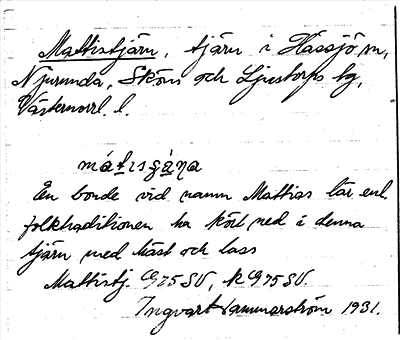 Mattistjärn, tjärn i Hässjö sn,
Njurunda, Sköns och Ljustorps tg,
Västernorrl. l.
En bonde vid namn Mattias lär enl.
folktraditionen ha kört ned i denna
tjärn med häst och lass
Mattistj. G75SV, k G75SV.
Ingvar Hammarström 1931.